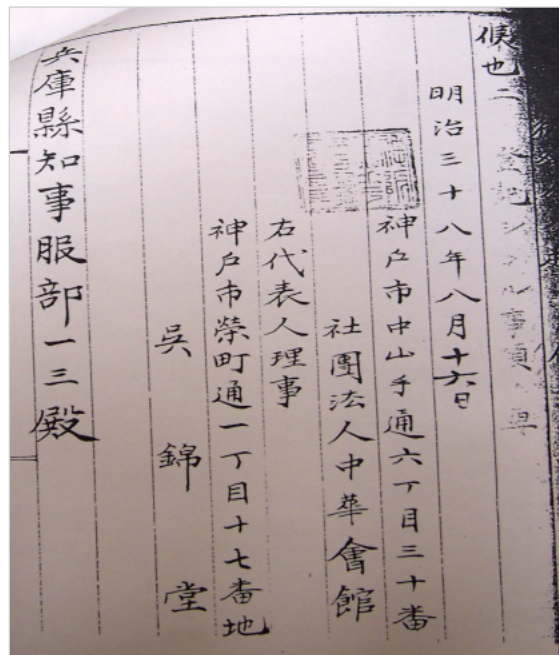 候也
明治三十八年八月十六日
神戸市中山手通六丁目三十番
社團法人中華會館
右代表人理事
神戸市榮町通一丁目十七番地
吳錦堂
兵庫縣知事服部一三殿